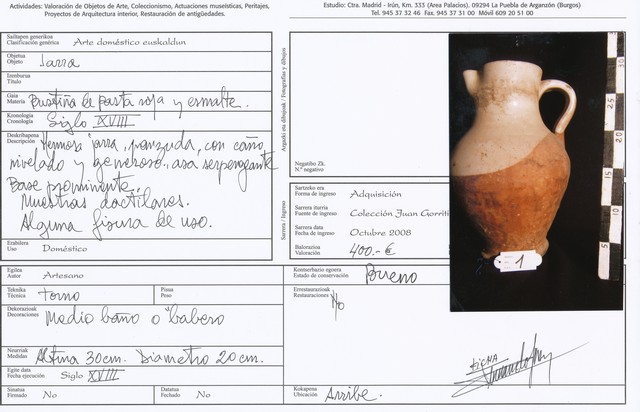 Actividades: Valoración de Objetos de Arte, Coleccionismo, Actuaciones museísticas, Peritajes,
Proyectos de Arquitectura interior, Restauración de antigüedades.
Estudio: Ctra. Madrid - Irún, Km. 333 (Area Palacios). 09294 La Puebla de Arganzón (Burgos)
Tel. 945 37 32 46 Fax. 945 37 31 00 Móvil 609 20 51 00
Sailtapen generikoa
Clasificación genérica Arte doméstico euskaldun
Objetua
Objeto Jarra
Izenburua
Título
Gaia
Materia de pasta roja y esmalte.
Kronologia
Cronología Siglo XVIII
Deskribapena
Descripción Hermosa jarra, panzuda, con caño
nivelado y generoso, asa serpenteante
Base prominente.
Muestras dactilares.
Alguna fisura de uso.
Erabilera
Uso Doméstico
Argazki eta dibujoak / Fotografías y dibujos
Negatibo Zk.
N.º negativo
Sarrera / Ingreso
Sartzeko era
Forma de ingreso Adquisición
Sarrera iturria
Fuente de ingreso Colección Juan Gorriti
Sarrera data
Fecha de ingreso Octubre 2008
Balorazioa
Valoración 400.- €
30
25
20
15
10
5
1
Egilea
Autor Artesano
Teknika
Técnica Torno
Pisua
Peso
Dekorazioak
Decoraciones Medio baño o "babero
Neurriak
Medidas Altura 30 cm. Diametro 20 cm.
Egite data
Fecha ejecución Siglo XVIII
Sinatua
Firmado No
Datatua
Fechado No
Kontserbazio egoera
Estado de conservación Bueno
Errestaurazioak
Restauraciones No
Kokapena
Ubicación Arribe.
FICHA